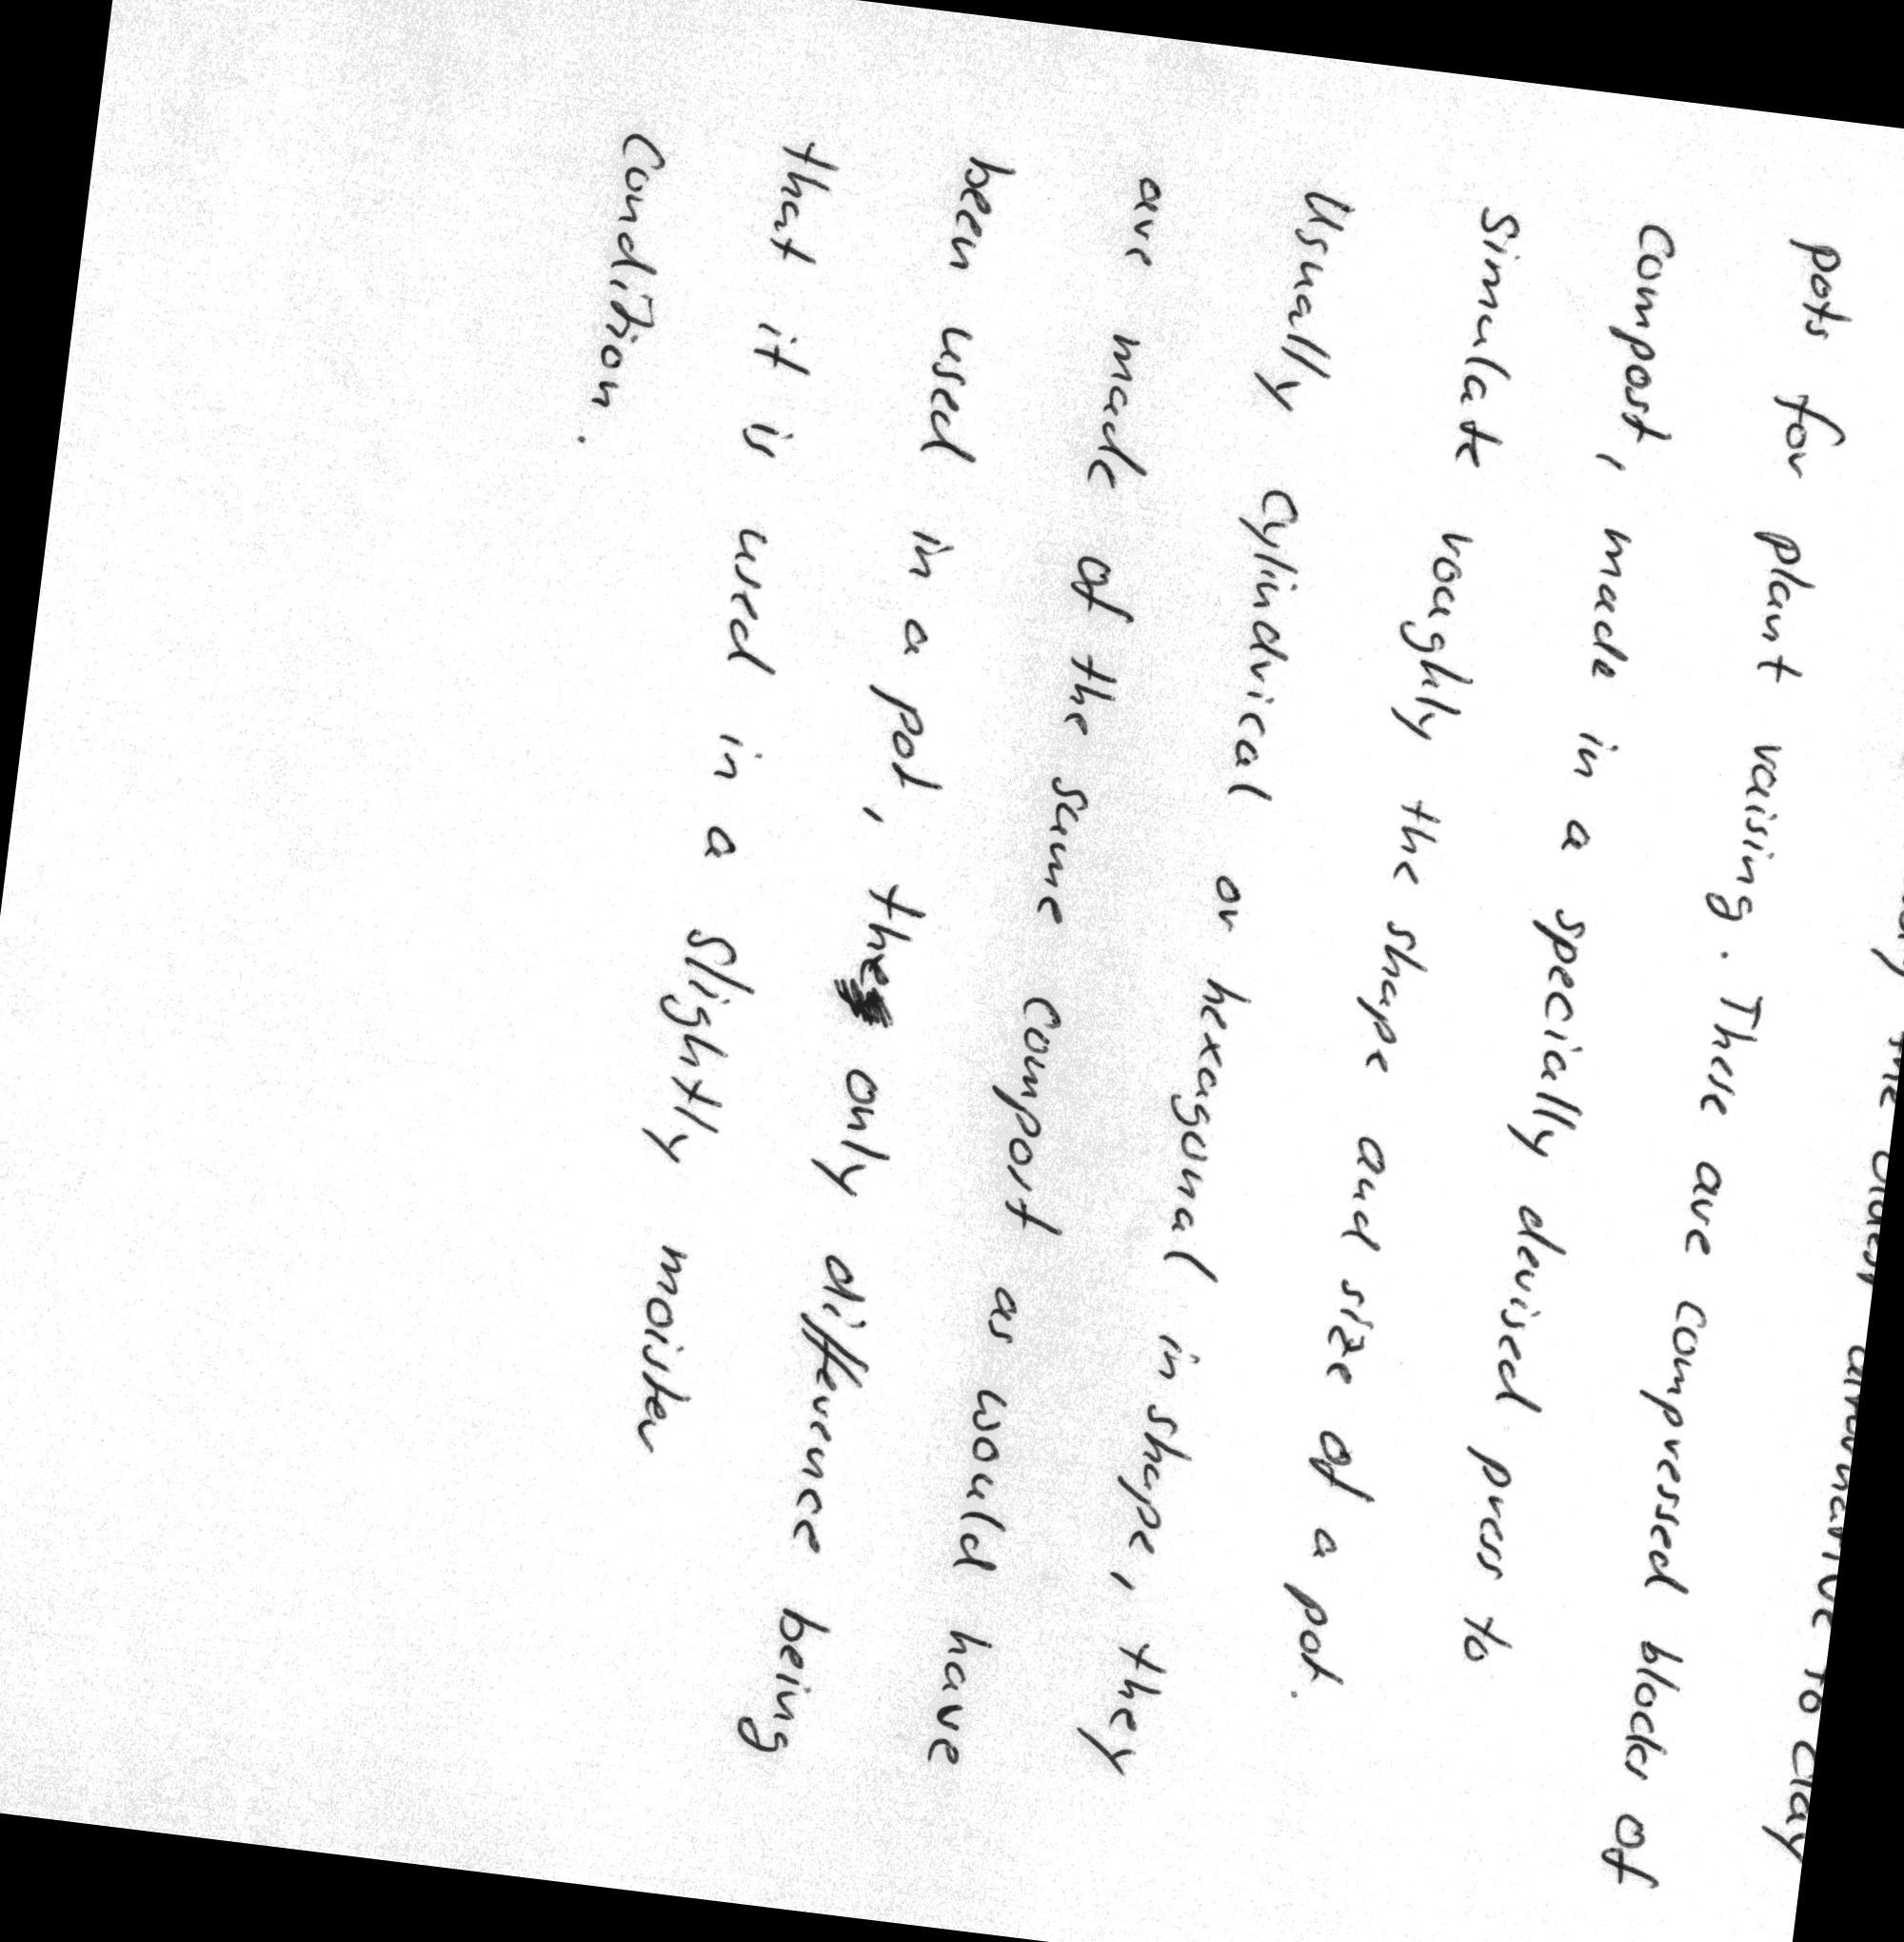 the oldest alternative to clay
pots for plant raising. These are compressed blocks of
Compost, made in a specially devised press to
Simulate roughly the shape and size of a pot.
Usually cylindrical or hexagonal in shape, they
are made of the same compost as would have
been used in a pot, the only difference being
that it is used in a slightly moister
Condition.